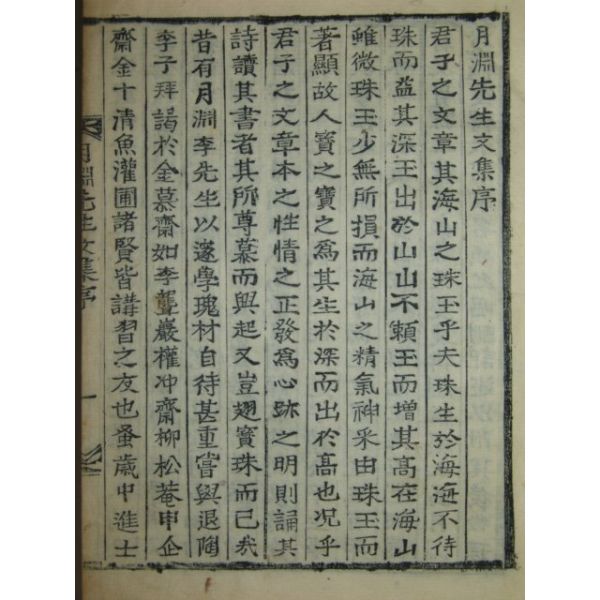 月淵先生文集序
君子之文章其海山之珠玉乎夫珠生於海海不待
珠而益其深玉出於山山不賴玉而增其高在海山
雖微珠玉少無所損而海山之精氣神采由珠玉而
著顯故人寶之寶之爲其生於深而出於高也况乎
君子之文章本之性情之正發爲心跡之明則誦其
詩讀其書者其所尊慕而興起又豈翅寶珠而已哉
昔有月淵李先生以邃學瑰材自待甚重嘗與退陶
李子拜謁於金慕齋如李聾巖權冲齋柳松菴申企
齋金十淸魚灌圃諸賢皆講習之友也蚤歲中進士
月淵先生文集序
一